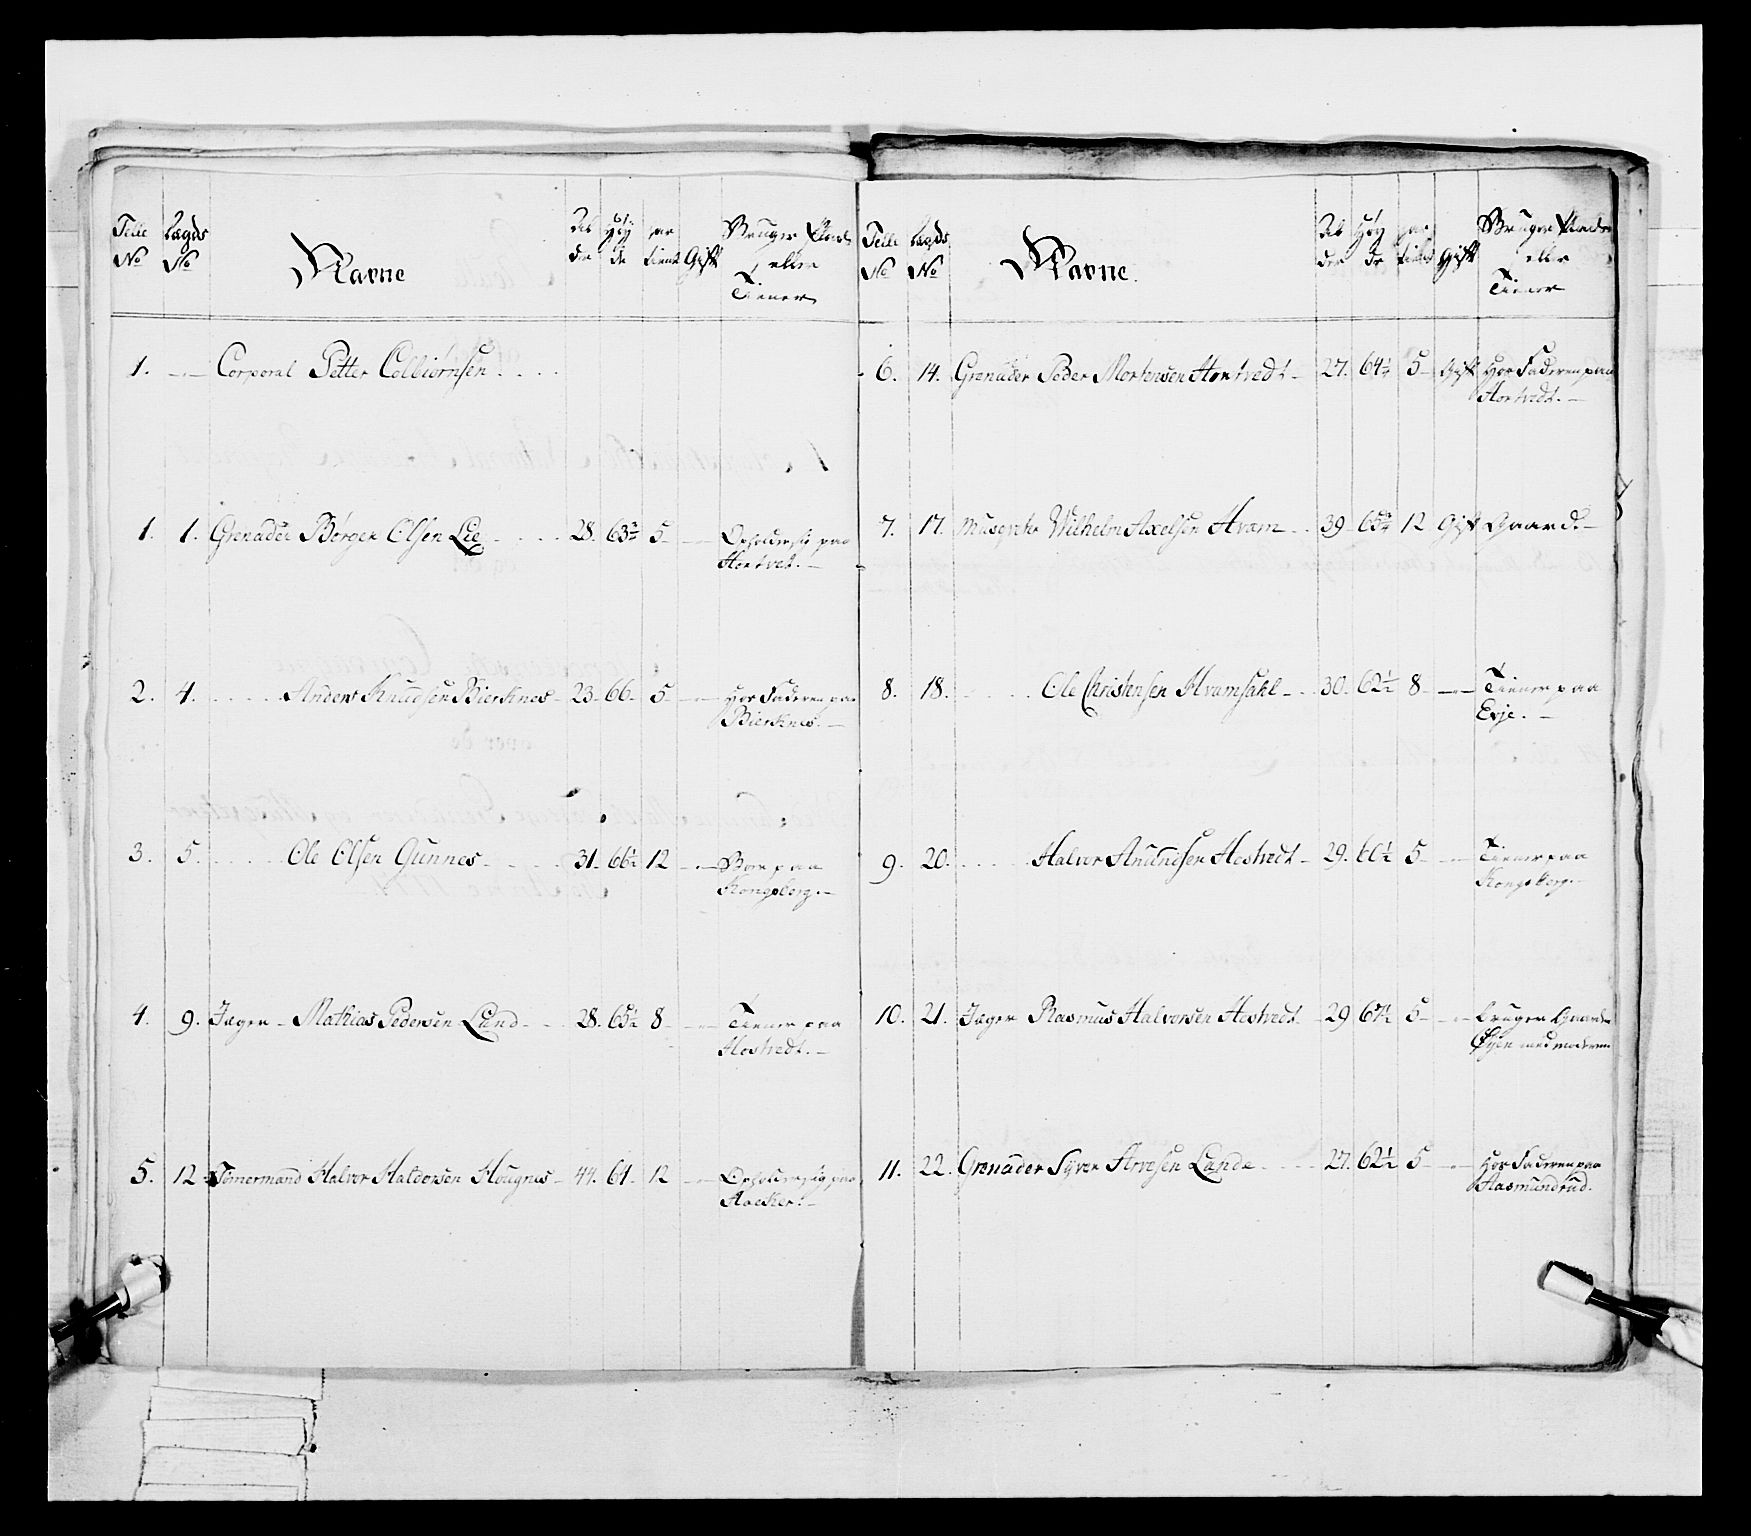 Telle Lægds
No No
Navne
Al Høy aar
der de tient Gift
Bruger Plads
eller
Tiener
1. Corporal Petter Colbiørnsen
1. 1. Grenader Børger Olsen Lie 28. 63¾ 5 Opholder sig paa
Hortvet.
2. 4. Anders Knudsen Bierknes 23. 66. 5 Hos Faderen paa
Bierknes.
3. 5. Ole Olsen Gunnes 31. 66½ 12 Boer paa
Kongsberg.
4. 9. Jæger Mathias Pedersen Lund 28. 65½ 8 Tiener paa
Hostvedt.
5. 12 Tømermand Halvor Haldorsen Hougnes 44. 61. 12 Opholder sig paa
Aaeker.
Telle Lægds
No No
Navne.
Al Høy aar
der de tient Gift
Bruger Plads
eller
Tiener
6. 14. Grenader Peder Mortensen Hortvedt 27. 64½ 5 Gift Hos Faderen paa
Hortvedt.
7. 17. Musqveter Wilhelm Axelsen Hvam 39 65¾ 12 Gift Gaard.
8. 18. Ole Christensen Hvamsahl 30. 62½ 8 Tiener paa
Evje.
9. 20. Halvor Anundsen Hostvedt 29. 61½ 5 Tiener paa
Kongsberg.
10. 21. Jæger Rasmus Halvorsen Hostvedt 29 67½ 5 bruger Gaarden
Øyen med moderen
11. 22. Grenader Syver Arvesen Lande 27. 62½ 5 Hos Faderen paa
Aasmundrud.